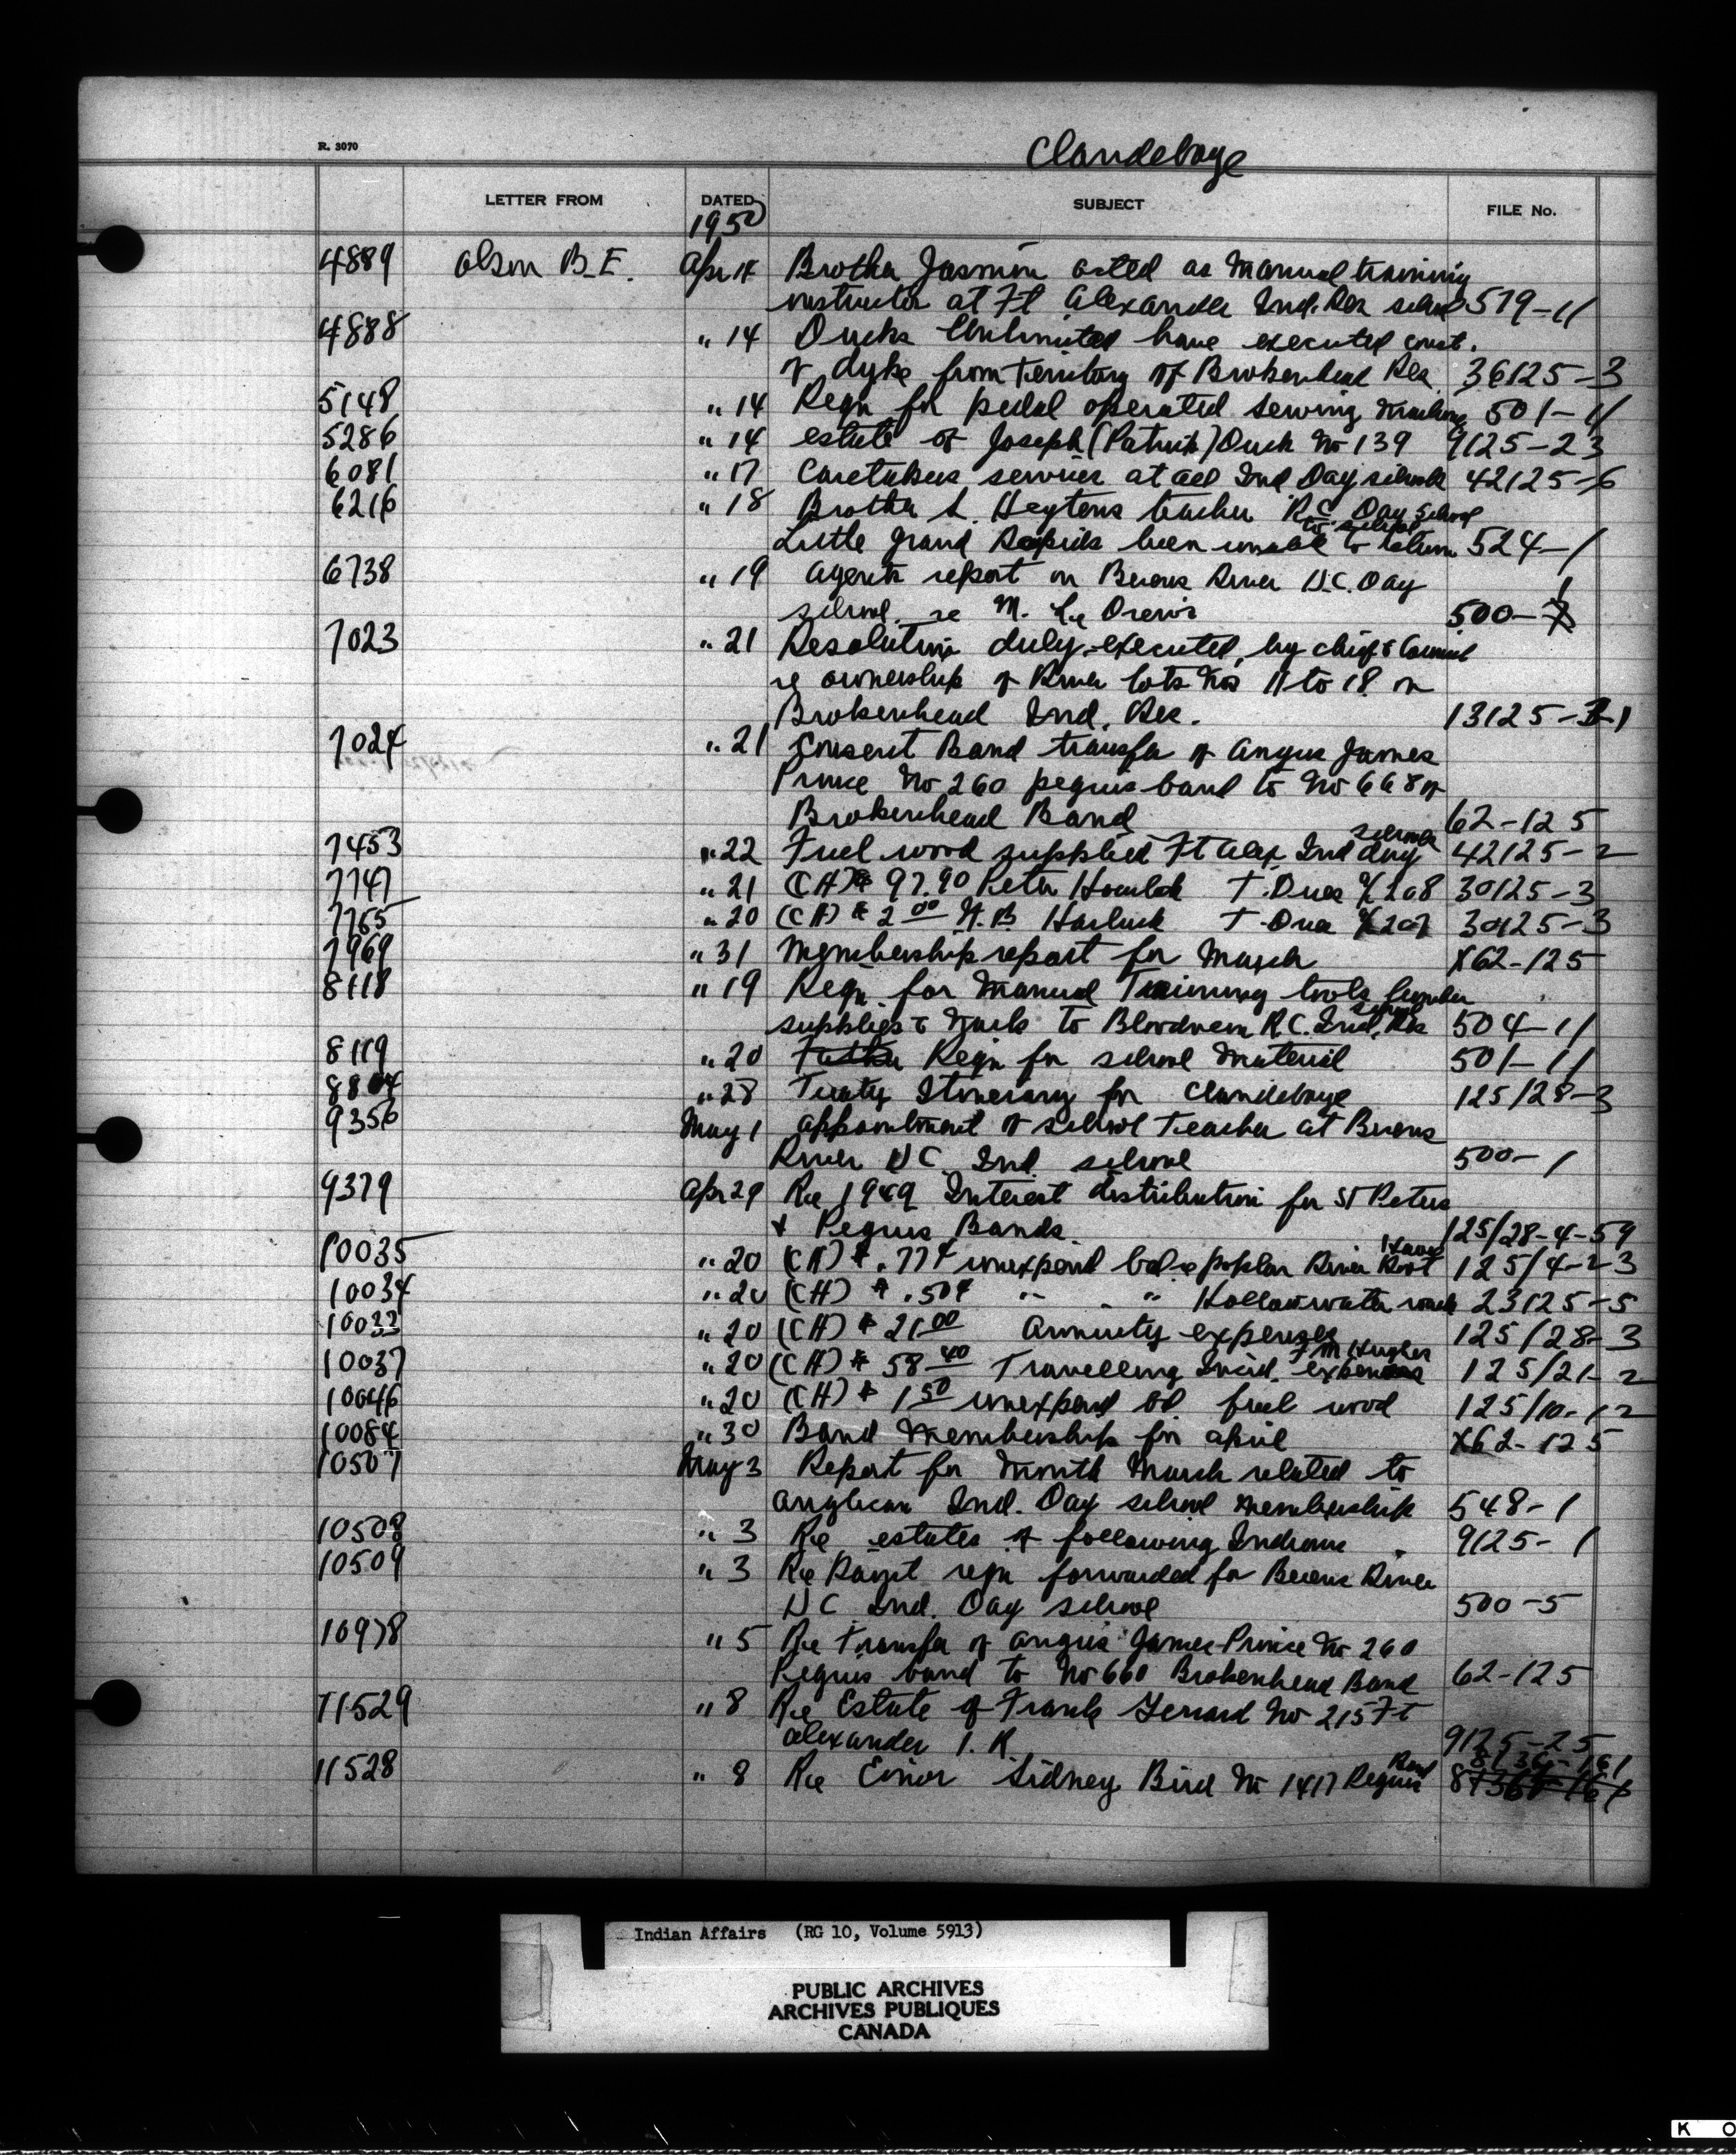 R. 3070
Clandeboye
LETTER FROM DATED SUBJECT FILE No.
1950
4889 Olson B.E. Apr 14 Brother acted as Manual training
instructor at Ft Alexander Ind. Res school 519-11
4888 " 14 Ducks Unlimited have executed const.
of dyke from territory of Brokenhead Res 36125-3
5148 " 14 Reqn for pedal operated sewing machine 501-11
5286 " 14 estate of Joseph (Patrick) Duck No 139 9125-23
6081 " 17 Caretakers services at all Ind Day schools 42125-6
6216 " 18 Brother L. Heytens teacher R.C. Day School
Little Grand Rapids been unable to return to school 524-1
6738 " 19 Agents report on Berens River U.C. Day
school re M. 500-1
7023 " 21 Resolution duly executed by chief & Council
re ownership of River lots Nos 11 to 18 on
Brokenhead Ind. Res. 13125-
7024 " 21 Consent Band transfer of Angus James
Prince No 260 peguis band to No 668 of
Brokenhead Band 62-125
7453 " 22 Fuel wood supplied Ft Alex Ind day schools 42125-2
7747 " 21 (CH) $ 97.90 Peter T. Dues 30125-3
7765 " 20 (CH) $ 2 00 T. Dues 30125-3
7969 " 31 Membership report for March X62-125
8118 " 19 Reqn for Manual Training tools lumber
supplies & nails to Bloodvein R.C. Ind. school 504-11
8119 " 20 Reqn for school material 501-11
" 28 Treaty Itinerary for Clandeboye 125/28-3
9356 May 1 appointment of school teacher at Berens
River U C Ind. school 500-1
9379 Apr 29 Re 1949 Interest distribution for St Peters
& Peguis Bands 125/28-4-59
10035 " 20 (CH) $ .77¢ unexpend bal re poplar River 125/4-2-3
10034 " 20 (CH) $ .50¢ " " " Hollow water 23125-5
10033 " 20 (CH) $ 21 00 Annuity expenses 125/28-3
10037 " 20 (CH) $ 58 40 Travelling Incid. expenses F M Hughes 125/21-2
10046 " 20 (CH) $ 1 50 unexpend bl fuel wood 125/10-12
10084 " 30 Band Membership for April X62-125
10507 May 3 Report for month March related to
Anglican Ind. Day school membership 548-1
10508 " 3 Re estates of following Indians 9125-1
10509 " 3 Re reqn forwarded for Berens River
U C Ind. Day school 500-5
10978 " 5 Re Transfer of Angus James Prince No 260
Peguis band to No 660 Brokenhead Band 62-125
11529 " 8 Re Estate of Frank No 215 Ft
Alexander I.R. 9125-25
11528 " 8 Re Sidney Bird No 1417 Peguis Band 8736-161
Indian Affairs (RG 10, Volume 5913)
PUBLIC ARCHIVES
ARCHIVES PUBLIQUES
CANADA
K O